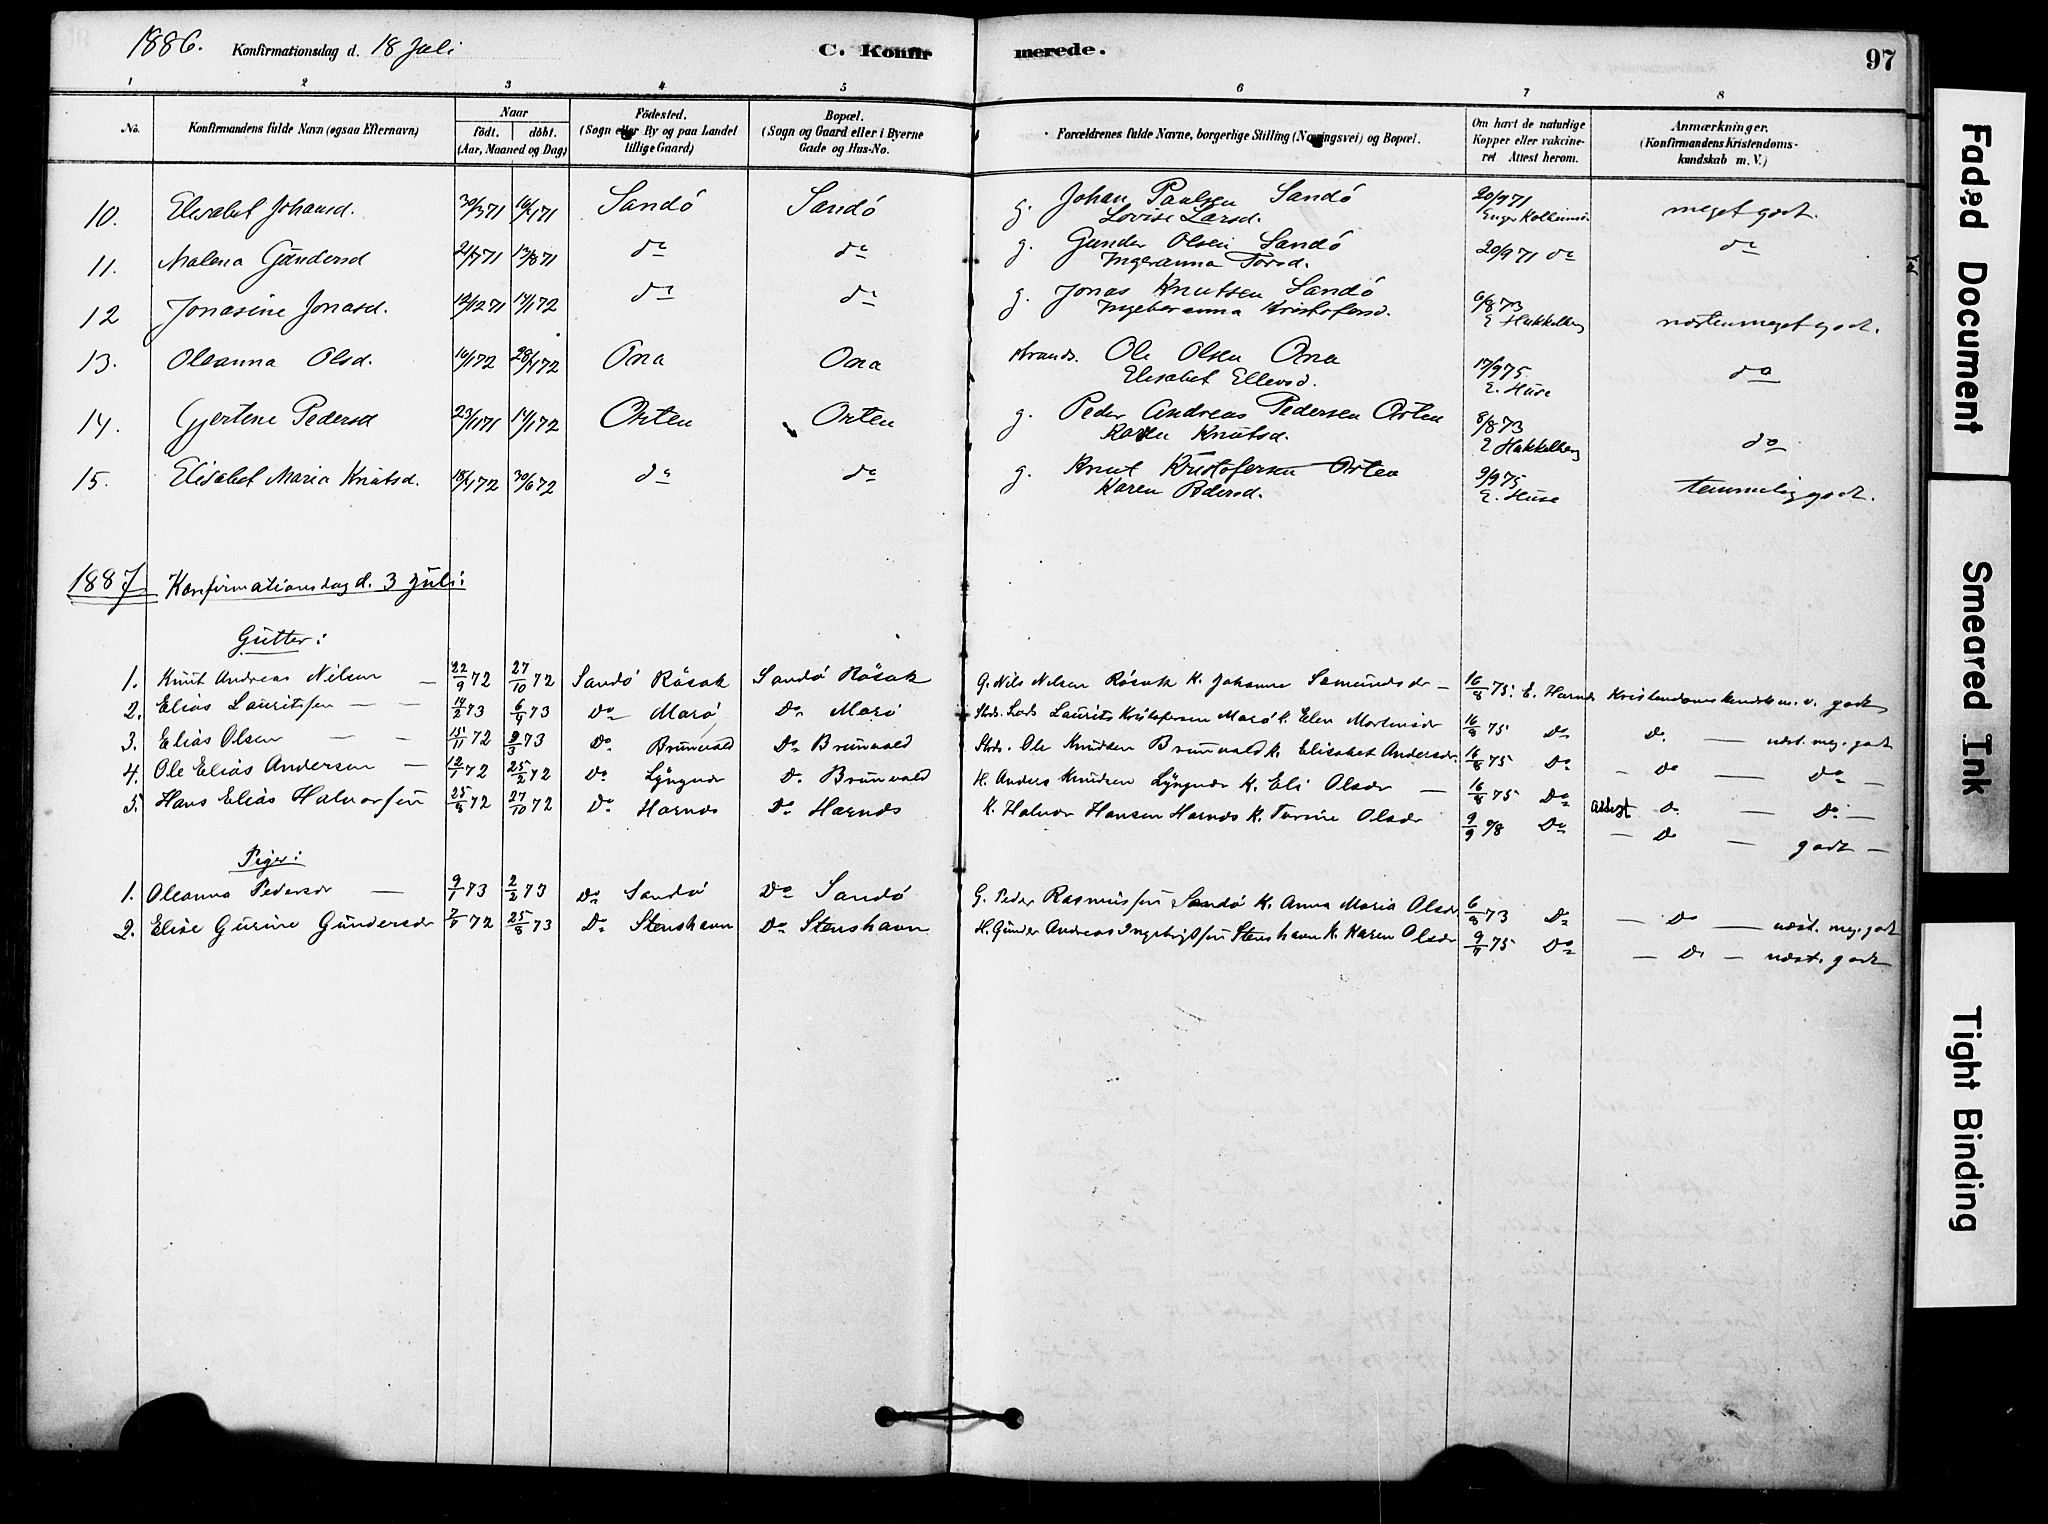 1886. Konfirmationsdag d. 18 Juli C. Konfirmerede. 97
1 2 3 4 5 6 7 8
No. Konfirmandens fulde Navn (ogsaa Efternavn) Naar födt. döbt. (Aar, Maaned og Dag) Födested. (Sogn eller By og paa Landet tillige Gaard) Bopæl. (Sogn og Gaard eller i Byerne Gade og Hus-No. Forældrenes fulde Navne, borgerlige Stilling (Næringsvei) og Bopæl. Om havt de naturlige Kopper eller vakcineret Attest herom. Anmærkninger. (Konfirmandens Kristendomskundskab m. V.)
10. Elisabet Johansd. 30/3 71 16/4 71 Sandö Sandö g. Johan Paulsen Sandö 20/9 71 meget godt.
Lovise Larsd.
11. Malena Gundersd 21/7 71 13/8 71 do do g. Gunder Olsen Sandö 20/9 71 do do
Ingeranna Torsd.
12 Jonasine Jonasd. 12/12 71 14/1 72 do do g. Jonas Knutsen Sandö 6/8 73 næstenmeget godt.
Ingeberanna Kristofersd. E Hakkelberg
13. Oleanna Olsd. 16/1 72 28/4 72 Ona Ona strands. Ole Olsen Ona 17/9 75 do
Elisabet Ellevsd. E. Huse
14. Gjertine Pedersd 23/11 71 14/1 72 Orten Orten g. Peder Andreas Pedersen Orten 8/8 73 do
Karen Knutsd. E Hakkelberg
15. Elisabet Maria Knutsd. 18/4 72 30/6 72 do do g. Knut Kristofersen Orten 9/9 75 temmelig godt.
Karen Pedersd. E. Huse
1887 Konfirmationsdag d. 3 Juli:
Gutter:
1. Knut Andreas Nilsen 22/9 72 27/10 72 Sandö Rösok Sandö Rösok G. Nils Nilsen Rösok K. Johanne Semundsdr 16/8 75. E. Harnes Kristendomskundsk m. v. godt
2. Elias Lauritssen 14/2 73 6/4 73 Do Marö Do Marö Lars Laurits Kristofersen Marö K. Elen Mortensdr 16/8 75 Do Do næst. meg. godt
3. Elias Olsen 15/11 72 9/3 73 Do Brunvold Do Brunvold Ole Knudsen Brunvold K. Elisabet Andersdr. 16/8 75 Do Do Do
4. Ole Elias Andersen 12/1 72 25/2 72 Do Lÿngnes Do Brunvold H. Anders Knudsen Lÿngnes K. Eli Olsdr 16/8 75 Do Do Do
5. Hans Elias Halvorsen 25/8 72 27/10 72 Do Harnes Do Harnes K. Halvor Hansen Harnes K. Torine Olsdr 9/9 Do Do godt
Piger:
1. Oleanna Pedersdr 9/1 73 2/2 73 Do Sandö Do Sandö G. Peder Rasmussen Sandö K. Anna Maria Olsdr 6/8 73 Do Do næst. meg. godt
2. Elise Gurine Gundersdr 7/9 72 25/8 73 Do Stenshavn Do Stenshavn H. Gunder Andreas Ingebrigtsen Stenshavn K. Karen Olsdr 9/9 75 Do Do næst. godt
Faded Document
Smeared Ink
Tight Binding